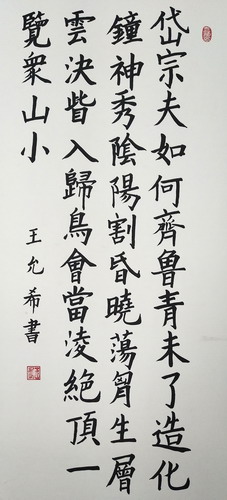 岱宗夫如何齊魯青未了造化
鐘神秀陰陽割昏曉蕩胷生層
雲決眥入歸鳥會當淩絕頂一
覽眾山小
王允希書